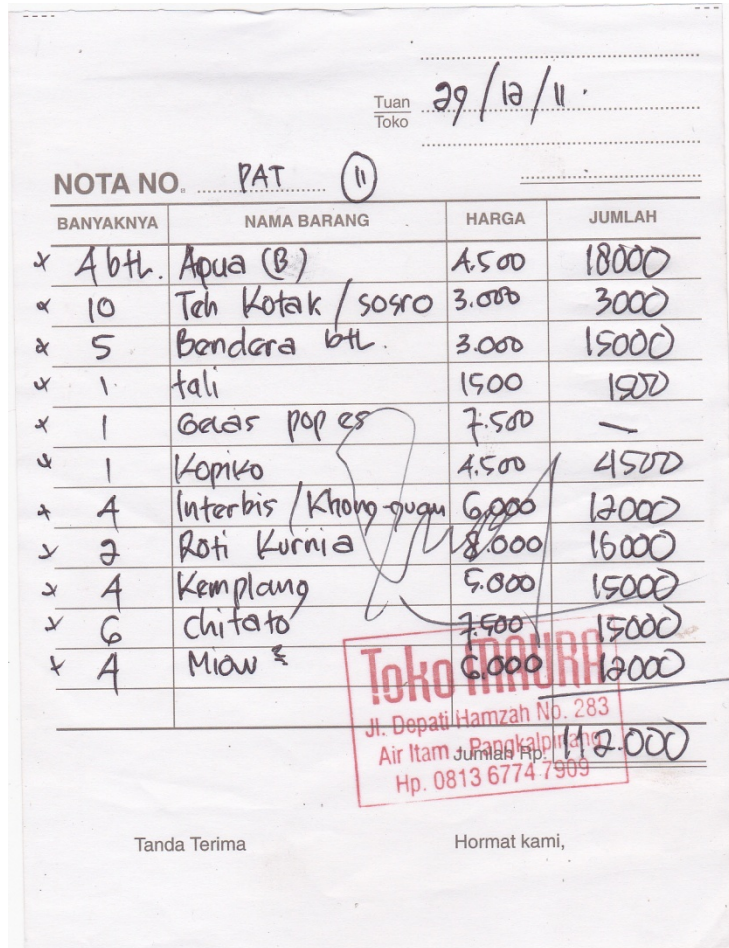 29/12/11.
Tuan
Toko
NOTA NO. PAT 11
BANYAKNYA NAMA BARANG HARGA JUMLAH
x 4 btl. Aqua (B) 4.500 18000
x 10 Teh Kotak / sosro 3.000 3000
x 5 Bendera btl. 3.000 15000
x 1. tali 1500 1500
x 1 Gelas pop es 7.500 —
x 1 Kopiko 4.500 4500
x 4 Interbis / Khong-guan 6.000 12000
x 2 Roti Kurnia 8.000 16000
x 4 Kemplang 5.000 15000
x 6 Chitato 7.500 15000
x 4 Miow 6.000 12000
Toko MAURA
Jl. Depati Hamzah No. 283
Air Itam - Pangkalpinang
Jumlah Rp. 112.000
Hp. 0813 6774 7909
Tanda Terima Hormat kami,